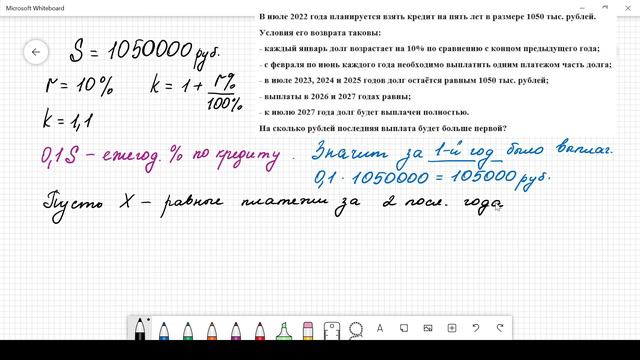 Microsoft Whiteboard
В июле 2022 года планируется взять кредит на пять лет в размере 1050 тыс. рублей.
Условия его возврата таковы:
- каждый январь долг возрастает на 10% по сравнению с концом предыдущего года;
- с февраля по июнь каждого года необходимо выплатить одним платежом часть долга;
- в июле 2023, 2024 и 2025 годов долг остаётся равным 1050 тыс. рублей;
- выплаты в 2026 и 2027 годах равны;
- к июлю 2027 года долг будет выплачен полностью.
На сколько рублей последняя выплата будет больше первой?
S = 1050000 руб.
r = 10% k = 1 + r%/100%
k = 1,1
0,1S – ежегод. % по кредиту. Значит за 1-й год было выплач.
0,1 · 1050000 = 105000 руб.
Пусть X – равные платежи за 2 посл. года